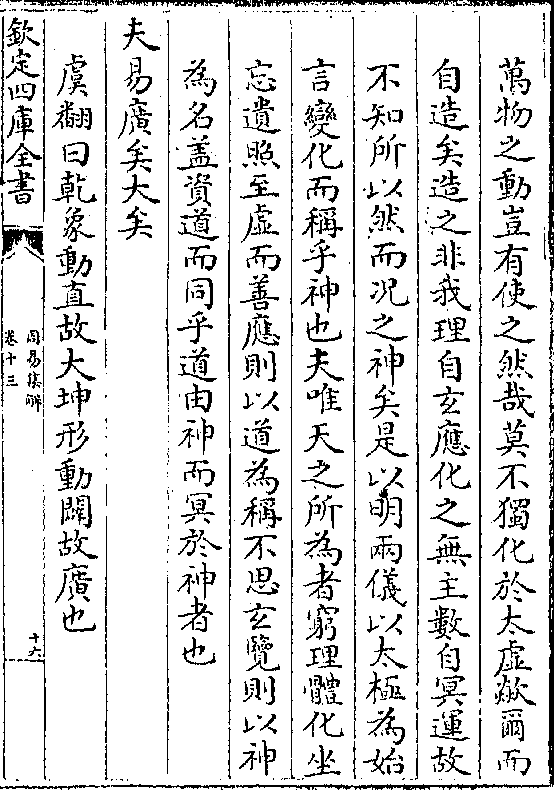 萬物之動豈有使之然哉莫不獨化於太虛歘爾而
自造矣造之非我理自玄應化之無主數自冥運故
不知所以然而况之神矣是以明兩儀以太極為始
言變化而稱乎神也夫唯天之所為者窮理體化坐
忘遺照至虛而善應則以道為稱不思玄覽則以神
為名盖資道而同乎道由神而冥於神者也
夫易廣矣大矣
虞翻曰乾象動直故大坤形動闢故廣也
欽定四庫全書
周易集解
卷十三
十六